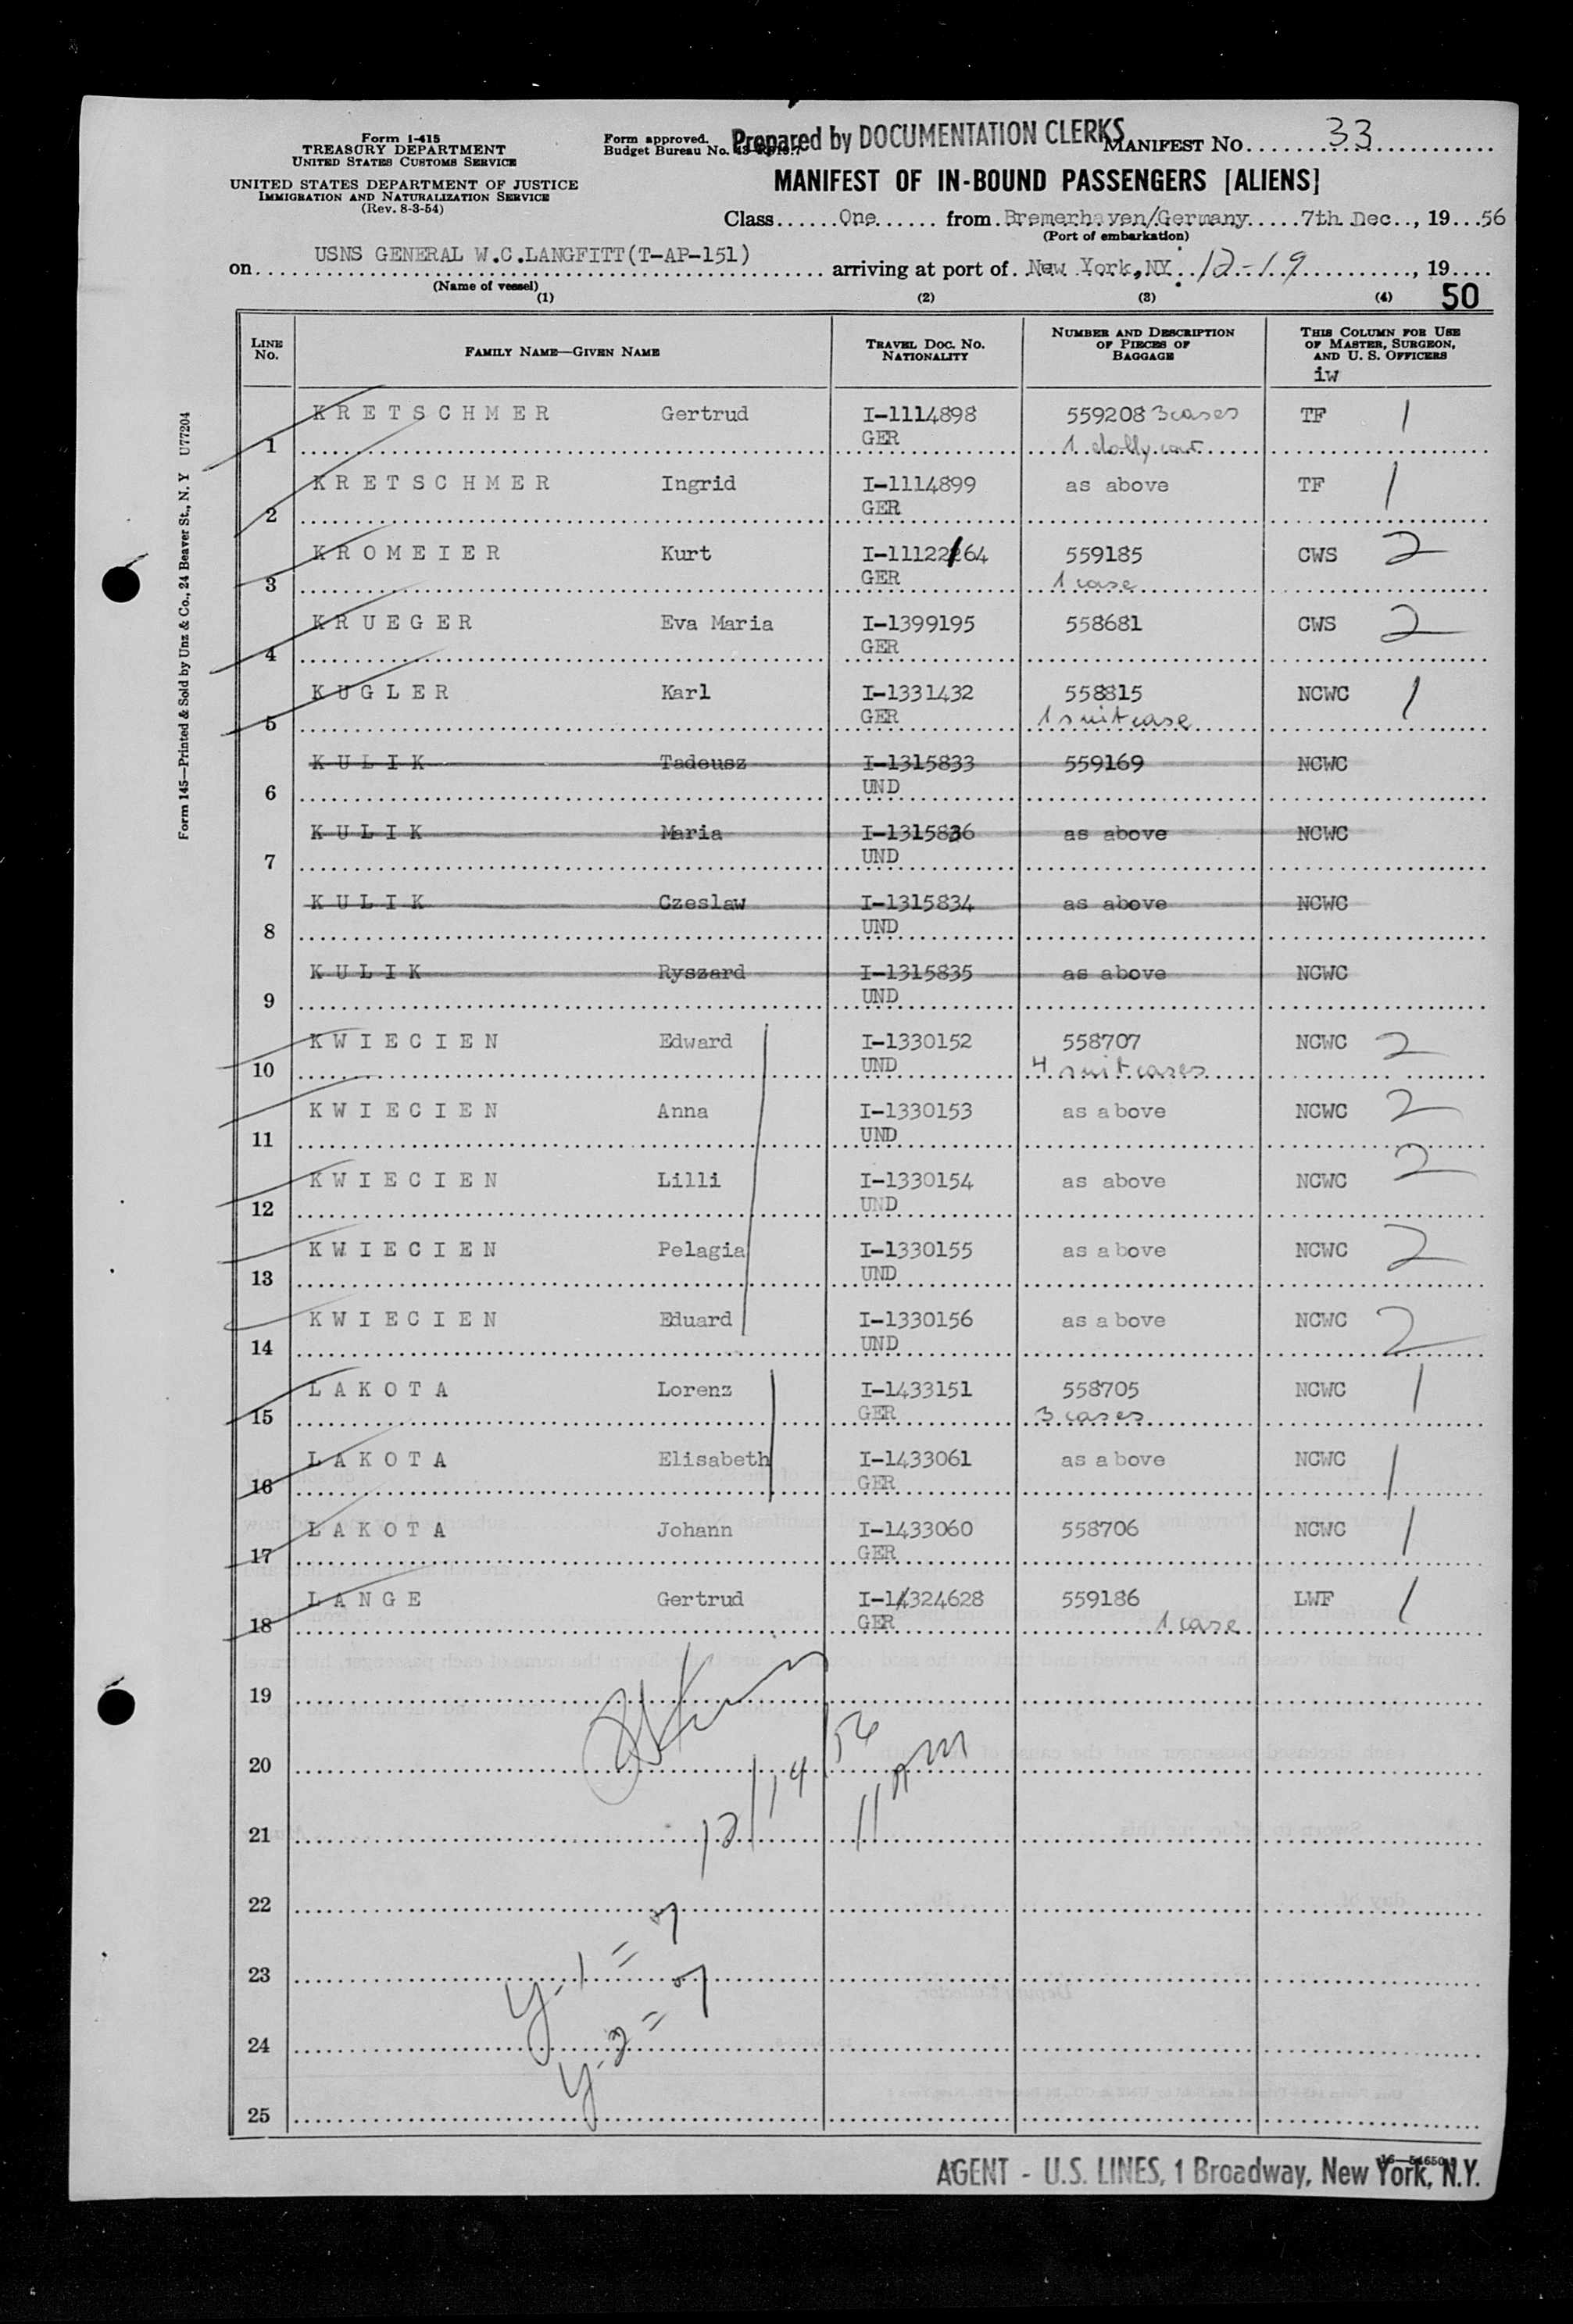 Form I-415
TREASURY DEPARTMENT
UNITED STATES CUSTOMS SERVICE
UNITED STATES DEPARTMENT OF JUSTICE
IMMIGRATION AND NATURALIZATION SERVICE
(Rev. 8-3-54)
Form approved.
Budget Bureau No.
Prepared by DOCUMENTATION CLERKS
MANIFEST NO. 33
MANIFEST OF IN-BOUND PASSENGERS [ALIENS]
Class One from Bremerhaven/Germany 7th Dec., 19 56
(Port of embarkation)
on USNS GENERAL W.C.LANGFITT(T-AP-151) arriving at port of New York,NY. 12-19, 19
(Name of vessel)
(1) (2) (3) (4) 50
LINE NO. FAMILY NAME—GIVEN NAME TRAVEL DOC. NO. NATIONALITY NUMBER AND DESCRIPTION OF PIECES OF BAGGAGE THIS COLUMN FOR USE OF MASTER, SURGEON, AND U. S. OFFICERS
iw
1 KRETSCHMER Gertrud I-1114898 559208 3 cases TF 1
GER 1 dolly cart
2 KRETSCHMER Ingrid I-1114899 as above TF 1
GER
3 KROMEIER Kurt I-11122/64 559185 CWS 2
GER 1 case
4 KRUEGER Eva Maria I-1399195 558681 CWS 2
GER
5 KUGLER Karl I-1331432 558815 NCWC 1
GER 1 suitcase
6 KULIK Tadeusz I-1315833 559169 NCWC
UND
7 KULIK Maria I-1315836 as above NCWC
UND
8 KULIK Czeslaw I-1315834 as above NCWC
UND
9 KULIK Ryszard I-1315835 as above NCWC
UND
10 KWIECIEN Edward I-1330152 558707 NCWC 2
UND 4 suitcases
11 KWIECIEN Anna I-1330153 as above NCWC 2
UND
12 KWIECIEN Lilli I-1330154 as above NCWC 2
UND
13 KWIECIEN Pelagia I-1330155 as above NCWC 2
UND
14 KWIECIEN Eduard I-1330156 as above NCWC 2
UND
15 LAKOTA Lorenz I-1433151 558705 NCWC 1
GER 3 cases
16 LAKOTA Elisabeth I-1433061 as above NCWC 1
GER
17 LAKOTA Johann I-1433060 558706 NCWC 1
GER
18 LANGE Gertrud I-1/324628 559186 LWF 1
GER 1 case
19
20
12/19/56
11 AM
21
22
y-1 = 7
23
y-2 = 7
24
25
AGENT - U.S. LINES, 1 Broadway, New York, N.Y.
Form 145—Printed & Sold by Unz & Co., 24 Beaver St., N. Y U77204